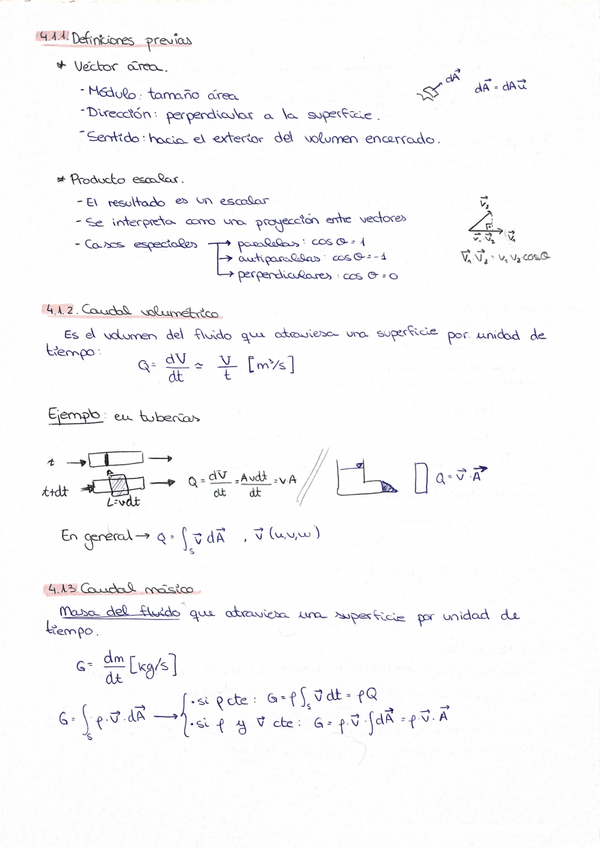 4.1.1. Definiciones previas
* Véctor área.
- Módulo: tamaño área
dA⃗
dA⃗ = dA u⃗
- Dirección: perpendicular a la superficie.
- Sentido: hacia el exterior del volumen encerrado.
* Producto escalar.
- El resultado es un escalar
- Se interpreta como una proyección entre vectores
- Casos especiales → paralelas: cos θ = 1
→ antiparalelas: cos θ = -1
→ perpendiculares: cos θ = 0
V⃗₁ V⃗₂ = V₁ V₂ cos θ
4.1.2. Caudal volumétrico
Es el volumen del fluido que atraviesa una superficie por unidad de
tiempo:
Q = dV/dt ≃ V/t [m³/s]
Ejemplo: en tuberías
t
A
t+dt
L=vdt
Q = dV/dt = Avdt/dt = vA
Q = v⃗ · A⃗
En general → Q = ∫ₛ v⃗ dA⃗ , v⃗ (u,v,w)
4.1.3 Caudal másico
Masa del fluido que atraviesa una superficie por unidad de
tiempo.
G = dm/dt [kg/s]
G = ∫ₛ ρ · v⃗ · dA⃗ →
· si ρ cte: G = ρ ∫ₛ v⃗ dt = ρQ
· si ρ y v⃗ cte: G = ρ · v⃗ · ∫ dA⃗ = ρ · v⃗ · A⃗